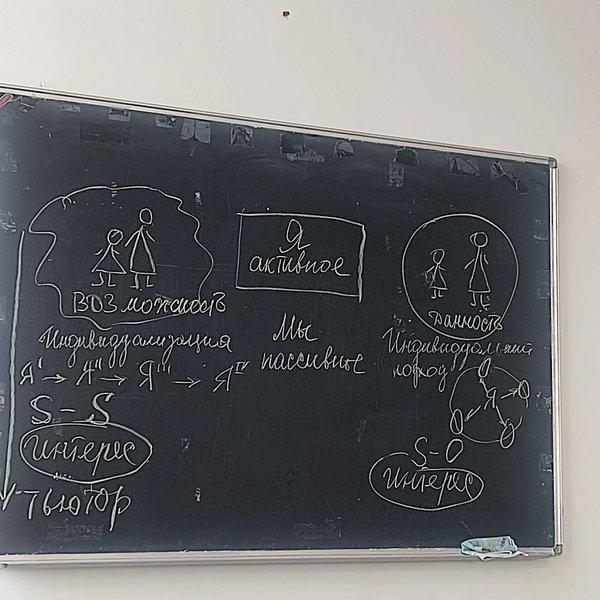 возможность
Индивидуализация
Я' → Я'' → Я''' → Я''''
S – S
Интерес
тьютор
Я
активное
Мы
пассивные
Данность
Индивидуальный
подход
Я
S – O
Интерес